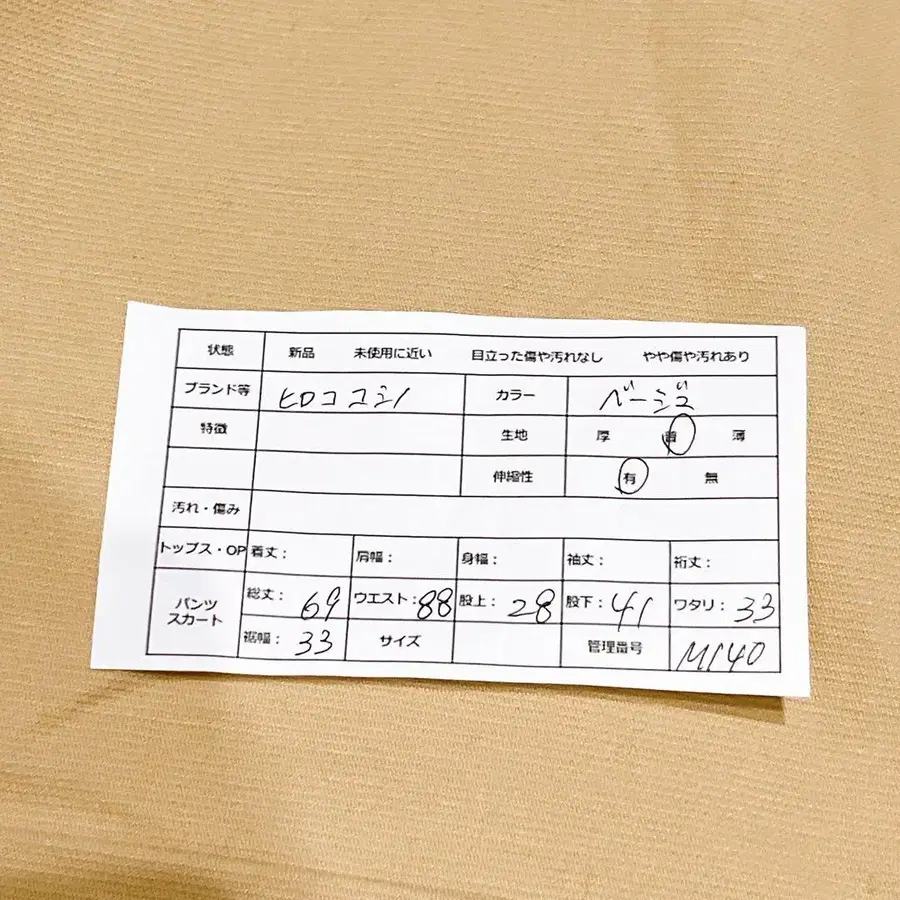 状態 新品 未使用に近い 目立った傷や汚れなし やや傷や汚れあり
ブランド等 ヒロココシノ カラー ベージュ
特徴 生地 厚 普 薄
伸縮性 有 無
汚れ・傷み
トップス・OP 着丈： 肩幅： 身幅： 袖丈： 裄丈：
パンツ スカート 総丈： 69 ウエスト： 88 股上： 28 股下： 41 ワタリ： 33
裾幅： 33 サイズ 管理番号 M140